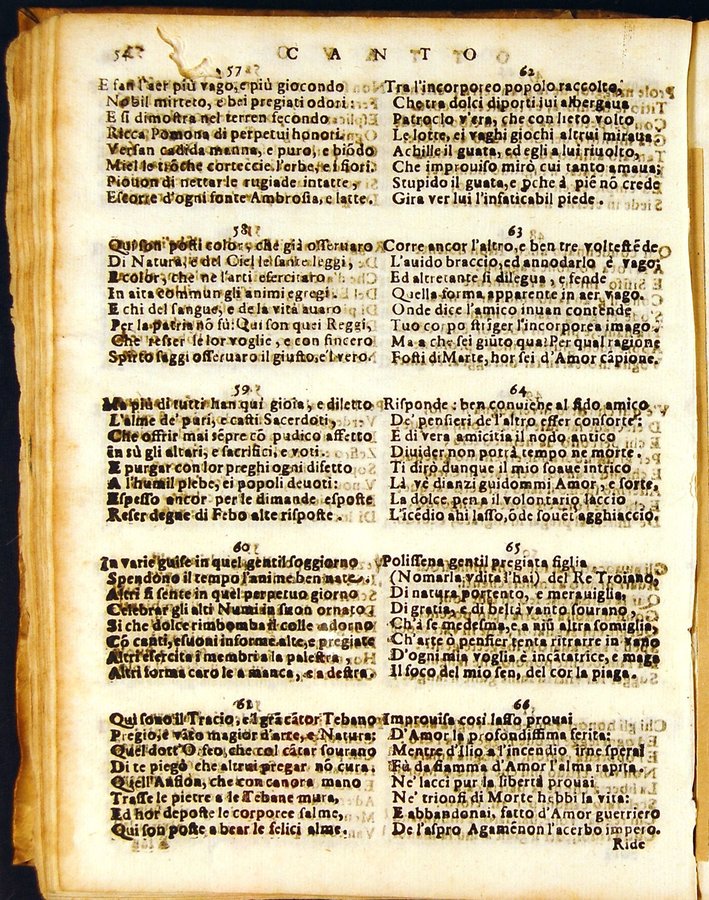 54
CANTO
57
E fan l'aer più vago, e più giocondo
Nobil mirteto, e bei pregiati odori:
E si dimostra nel terren fecondo
Ricca Pomona di perpetui honori.
Versan cãdida manna, e puro, e biõdo
Miel le trõche corteccie, l'erbe, e i fiori.
Piouon di nettar le rugiade intatte,
Escorre d'ogni fonte Ambrosia, e latte.
58
Qui son posti color, che già osseruaro
Di Natura, e del Ciel le sante leggi,
E color, che ne l'arti esercitaro
In aita commun gli animi egregi.
E chi del sangue, e de la vita auaro
Per la patria nõ fù: Qui son quei Reggi,
Che resser le lor voglie, e con sincero
Spirto saggi osseruaro il giusto, e'l vero.
59
Ma più di tutti han qui gioia, e diletto
L'alme de' pari, e casti Sacerdoti,
Che offrir mai sẽpre cõ pudico affetto
in sù gli altari, e sacrifici, e voti.
E purgar con lor preghi ogni difetto
A l'humil plebe, ei popoli deuoti:
Espesso ancor per le dimande esposte
Reser degne di Febo alte risposte.
60
In varie guise in quel gentil soggiorno
Spendono il tempo l'anime ben nate.
Altri si sente in quel perpetuo giorno
Celebrar gli alti Numi in suon ornato
Si che dolce rimbomba il colle adorno
Cõ canti, e suoni informe alte, e pregiate
Altri esercita i membri a la palestra,
Altri forma caro le a manca, e a destra.
61
Qui sono il Tracio, e'l grã cãtor Tebano
Pregio, e vãto magior d'arte, e Natura:
Quel dott'Orfeo, che col cãtar sourano
Di te piegò che altrui pregar nõ cura.
Quell'Anfion, che con canora mano
Trasse le pietre a le Tebane mura,
Ed hor deposte le corporee salme,
Qui son poste a bear le felici alme.
62
Tra l'incorporeo popolo raccolto,
Che tra dolci diporti iui albergaua
Patroclo v'era, che con lieto volto
Le lotte, ei vaghi giochi altrui miraua
Achille il guata, ed egli a lui riuolto,
Che improuiso mirò cui tanto amaua;
Stupido il guata, e pche à piè nõ crede
Gira ver lui l'infaticabil piede.
63
Corre ancor l'altro, e ben tre volte stẽde
L'auido braccio, ed annodarlo è vago;
Ed altretante si dilegua, e fende
Quella forma apparente in aer vago.
Onde dice l'amico inuan contende
Tuo corpo striger l'incorporea imago.
Ma a che sei giũto qua? Per qual ragione
Fosti di Marte, hor sei d'Amor cãpione.
64
Risponde: ben conuiene al fido amico
De' pensieri de l'altro esser consorte:
E di vera amicitia il nodo antico
Diuider non potrà tempo ne morte.
Ti dirò dunque il mio soaue intrico
Là ve dianzi guidommi Amor, e sorte,
La dolce pena il volontario laccio
L'icẽdio ahi lasso, õde souẽt' agghiaccio.
65
Polissena gentil pregiata figlia
(Nomarla vdita l'hai) del Re Troiano,
Di natura portento, e merauiglia,
Di gratia, e di beltà vanto sourano,
Ch'à se medesma, e a niũ altra somiglia,
Ch'arte ò pensier tenta ritrarre in vano
D'ogni mia voglia e incãtatrice, e maga
Il foco del mio sen, del cor la piaga.
66
Improuisa così lasso prouai
D'Amor la profondissima ferita:
Mentre d'Ilio a l'incendio irne sperai
Fù da fiamma d'Amor l'alma rapita.
Ne' lacci pur la libertà prouai
Ne' trionfi di Morte hebbi la vita:
E abbandonai, fatto d'Amor guerriero
De l'aspro Agamẽnon l'acerbo impero.
Ride